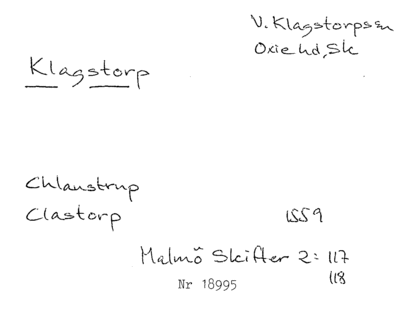 V. Klagstorps sn
Oxie hd, Sk
Klagstorp
Chlaustrup
Clastorp 1559
Malmö Skifter 2: 117
118
Nr 18995